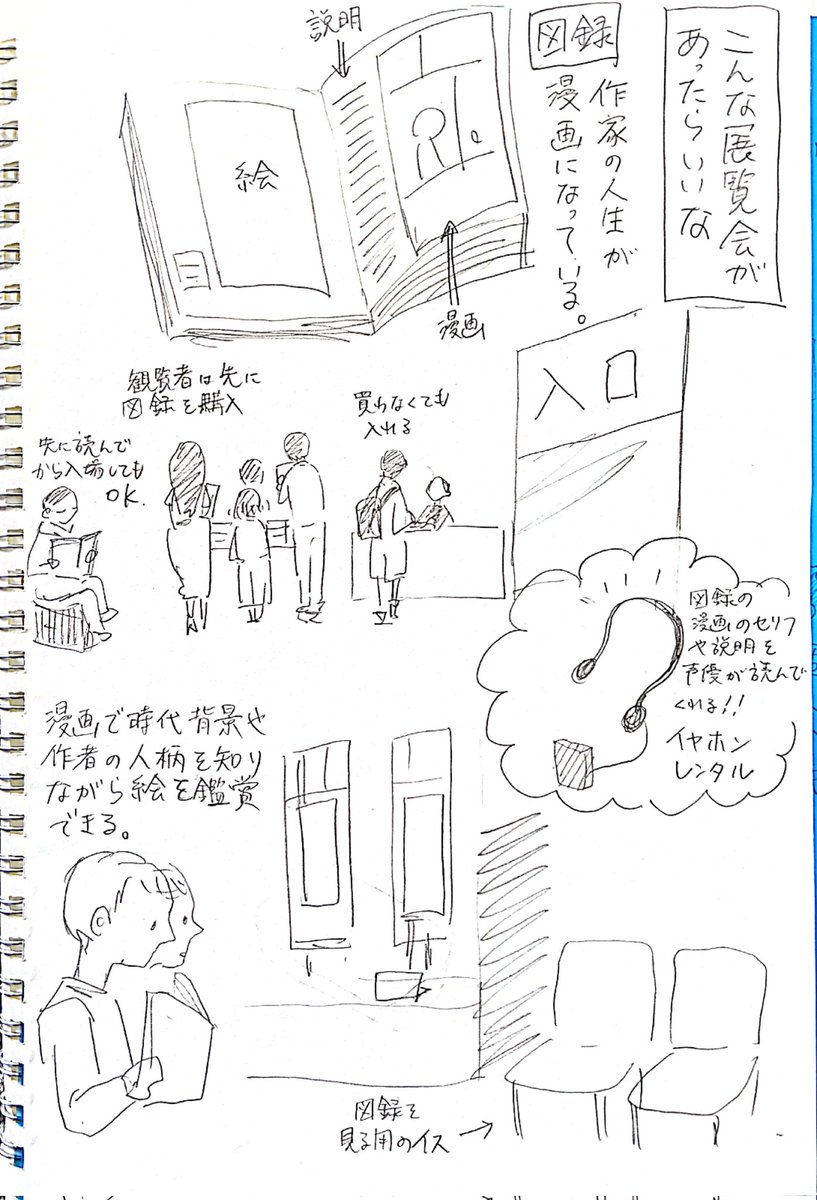 こんな展覧会が
あったらいいな
図録
作家の人生が
漫画になっている。
説明
絵
漫画
観覧者は先に
図録を購入
買わなくても
入れる
入口
先に読んで
から入場しても
OK.
図録の
漫画のセリフ
や説明を
声優が読んで
くれる!!
イヤホン
レンタル
漫画で時代背景や
作者の人柄を知り
ながら絵を鑑賞
できる。
図録を
見る用のイス